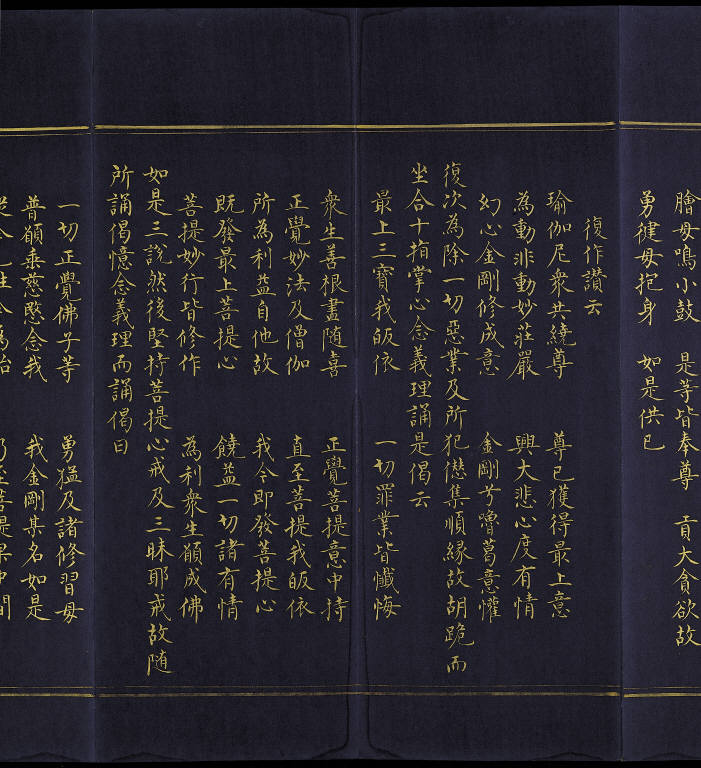 膾母鳴小鼓　是等皆奉尊　貢大貪欲故
勇健母抱身　如是供已
復作讃云
瑜伽尼衆共繞尊　尊已獲得最上意
為動非動妙莊嚴　興大悲心度有情
幻心金剛修成意　金剛
復次為除一切惡業及所犯僁集順縁故胡跪而
坐合十指掌心念義理誦是偈云
最上三寳我皈依　一切罪業皆懺悔
衆生善根盡随喜　正覺菩提意中持
正覺妙法及僧伽　直至菩提我皈依
所為利益自他故　我今即發菩提心
既發最上菩提心　饒益一切諸有情
菩提妙行皆修作　為利衆生願成佛
如是三說然後堅持菩提心戒及三昧耶戒故随
所誦偈憶念義理而誦偈曰
一切正覺佛子等　勇猛及諸修習母
普願垂慈愍念我　我金剛某名如是